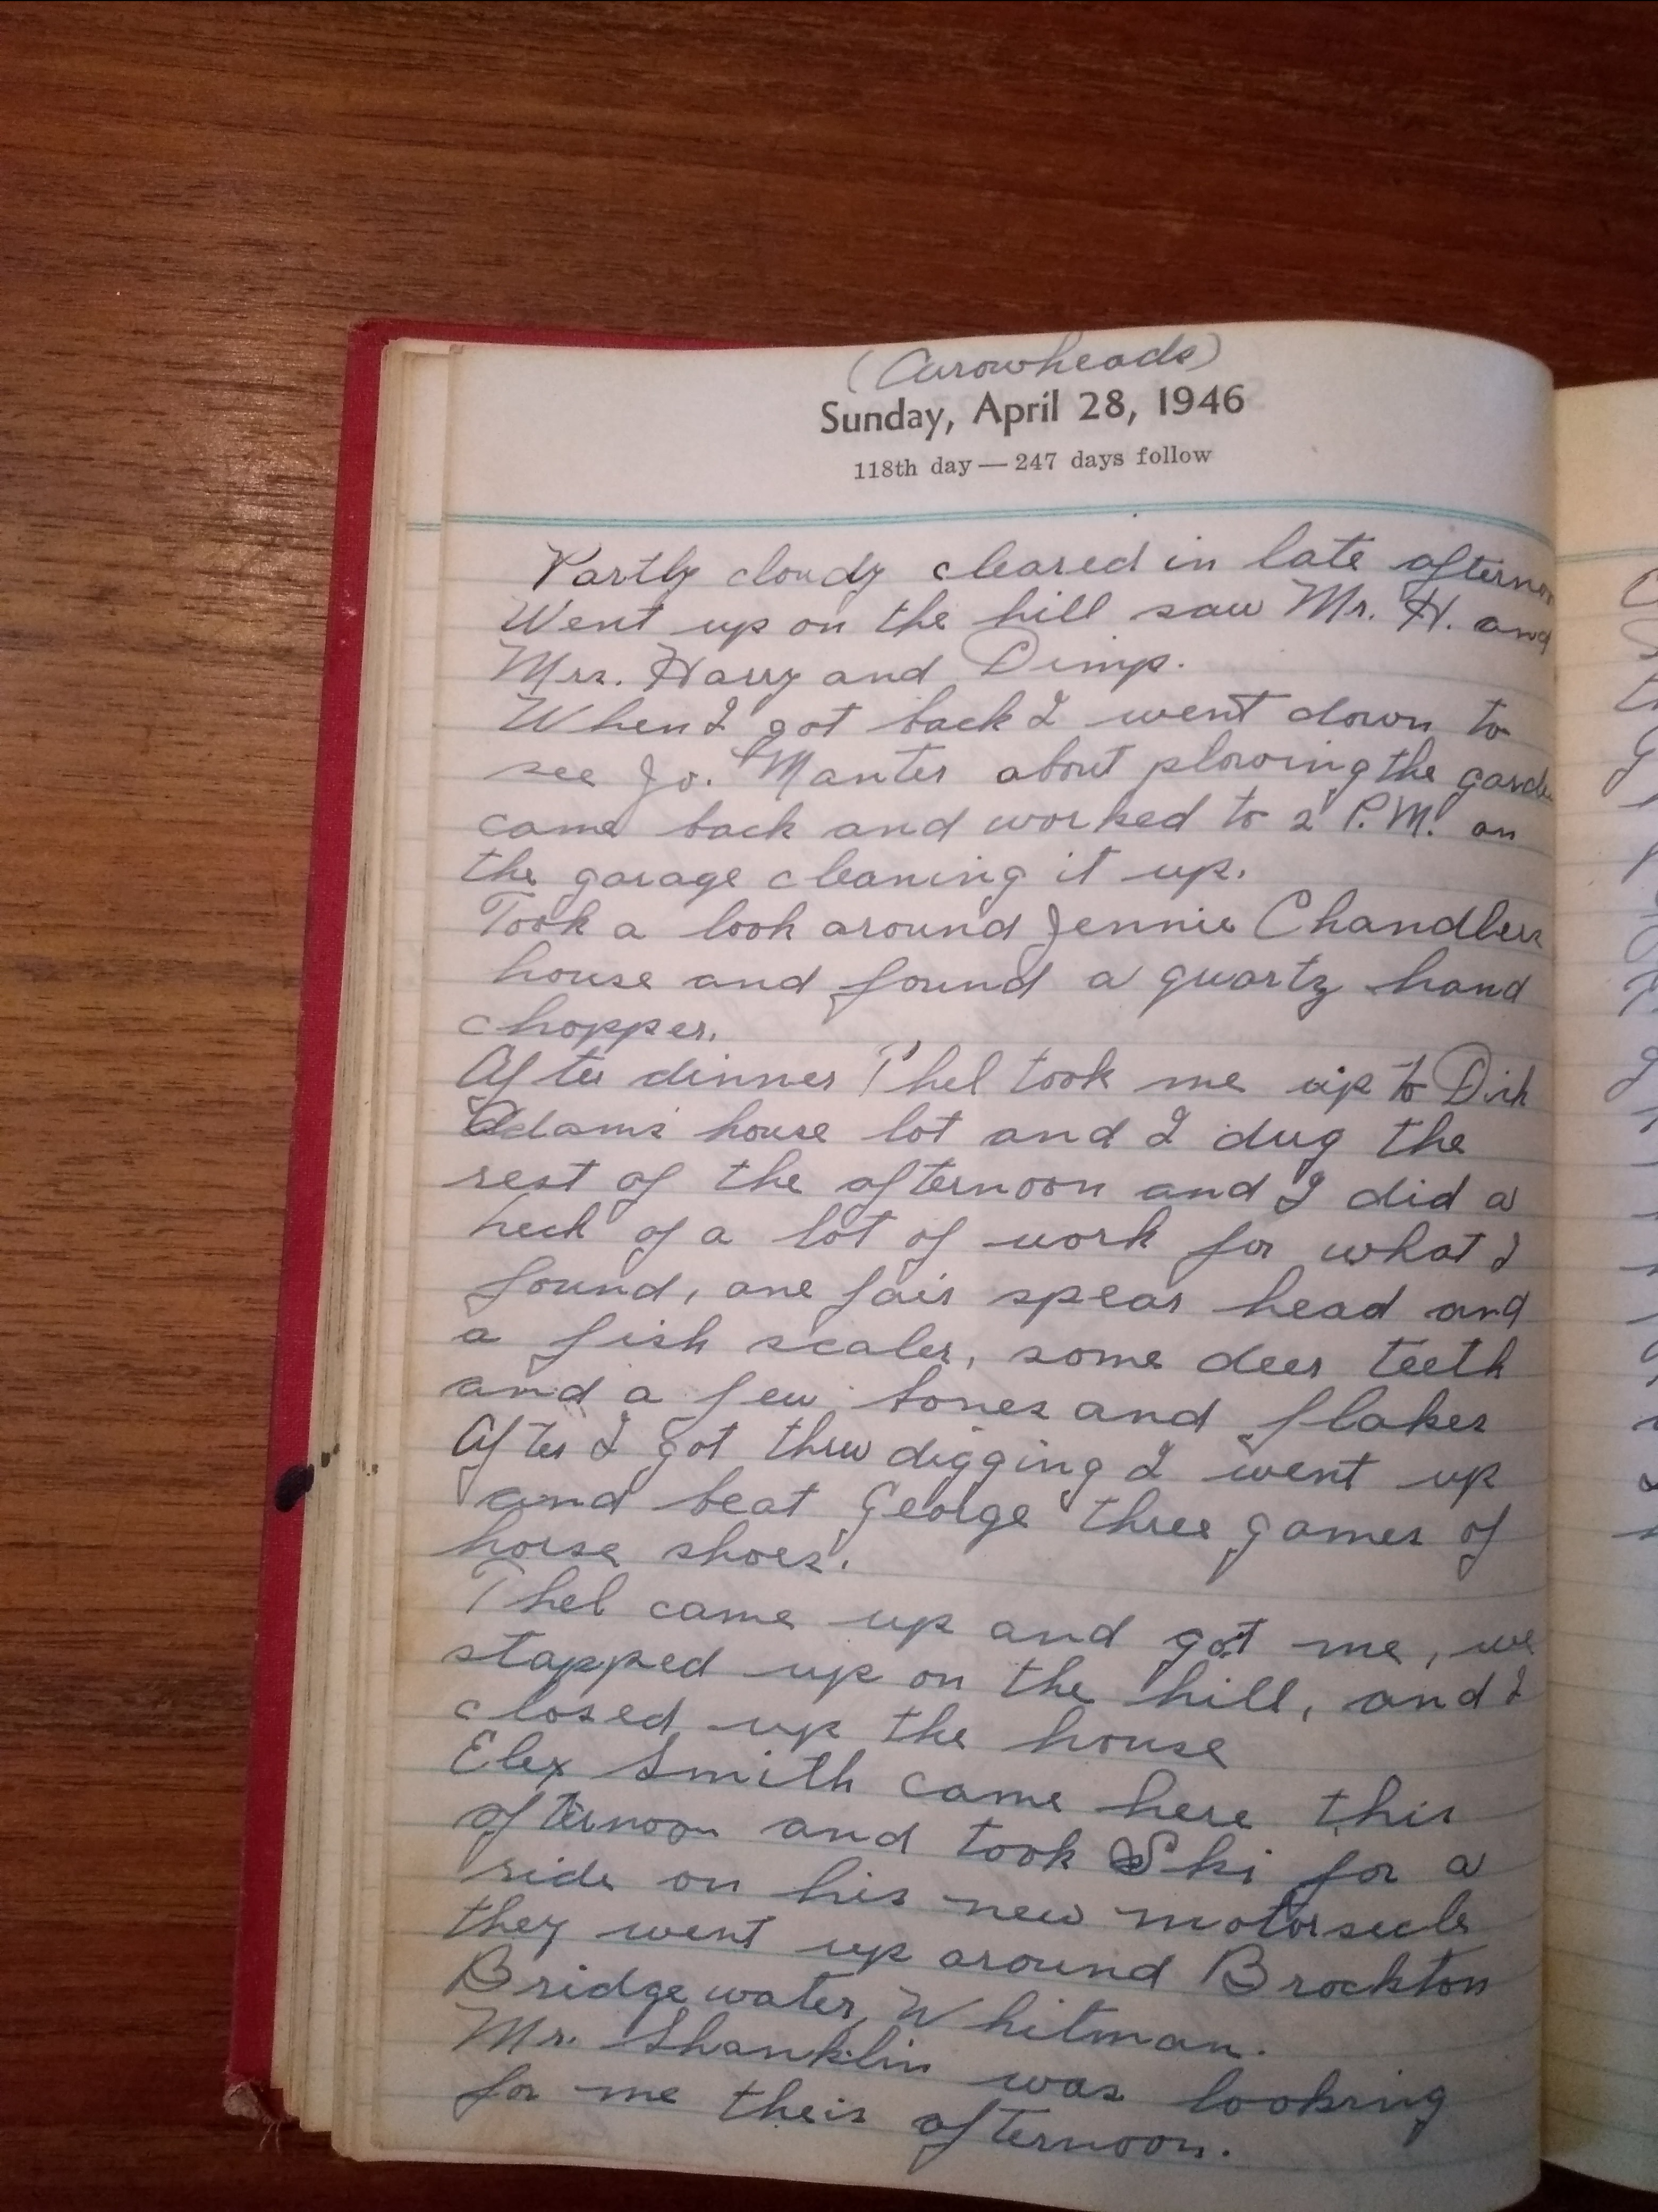 (Arrowheads)
Sunday, April 28, 1946
118th day — 247 days follow
Partly cloudy cleared in late afternoon
Went up on the hill saw Mr. H. and
Mrs. Harry and Dimp.
When I got back I went down to
see Jo. Manter about plowing the garde
came back and worked to 2 P.M. on
the garage cleaning it up.
Took a look around Jennie Chandlers
house and found a quartz hand
chopper.
After dinner Thel took me up to Dick
Adams house lot and I dug the
rest of the afternoon and I did a
heck of a lot of work for what I
found, one fair spear head and
a fish scaler, some deer teeth
and a few bones and flakes
After I got thru digging I went up
and beat George three games of
horse shoes.
Thel came up and got me, we
stopped up on the hill, and I
closed up the house
Elex Smith came here this
afternoon and took Ski for a
ride on his new motorsecle
they went up around Brockton
Bridgewater, Whitman.
Mr. Shanklin was looking
for me theis afternoon.